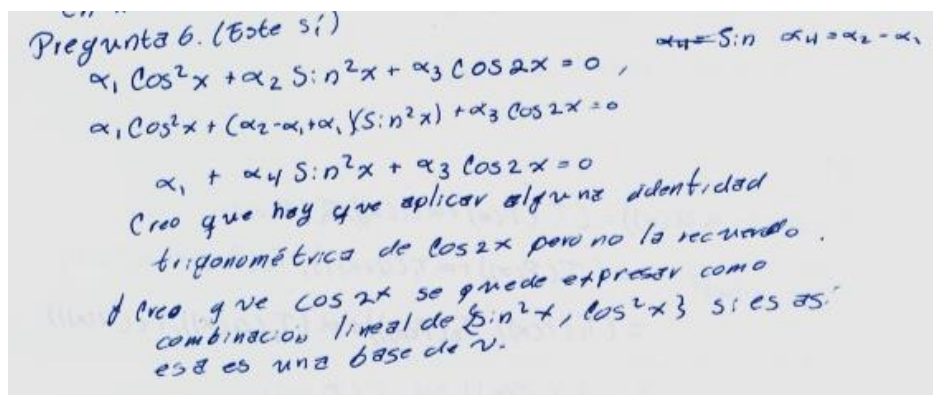 Pregunta 6. (Este sí)
α4 = Sin α4 = α2 - α1
α1 Cos²x + α2 Sin²x + α3 Cos 2x = 0,
α1 Cos²x + (α2 - α1 + α1)(Sin²x) + α3 Cos 2x = 0
α1 + α4 Sin²x + α3 Cos 2x = 0
Creo que hay que aplicar alguna identidad
trigonométrica de Cos 2x pero no la recuerdo.
Creo que cos 2x se puede expresar como
combinación lineal de {Sin²x, Cos²x} si es así
esa es una base de V.